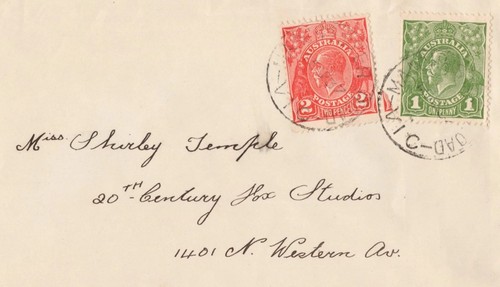 AUSTRALIA
2 2
TWO PENCE
POSTAGE
AUSTRALIA
POSTAGE
1 1
ONE PENNY
Miss. Shirley Temple
20TH-Century Fox Studios
1401 N. Western Av.